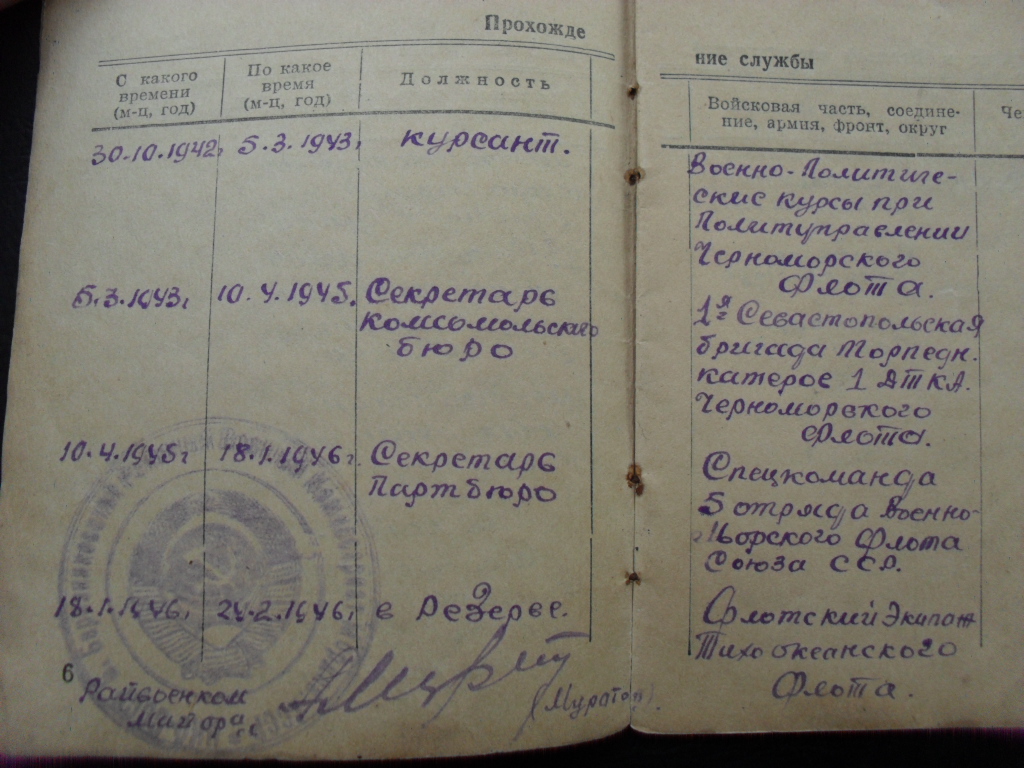 Прохожде
С какого
времени
(м-ц, год)
По какое
время
(м-ц, год)
Должность
30.10.1942г
5.3.1943г
курсант.
5.3.1943г.
10.4.1945.
Секретарь
комсомольского
бюро
10.4.1945г
18.1.1946г
Секретарь
Партбюро
18.1.1946г
24.2.1946г
в Резерве.
6
Райвоенком
Майора
(Муратов)
ние службы
Войсковая часть, соедине-
ние, армия, фронт, округ
Че
Военно-Политиче-
ские курсы при
Политуправлении
Черноморского
Флота.
1я Севастопольская
бригада Торпедн.
катеров 1 ДТКА.
Черноморского
Флота.
Спецкоманда
5 отряда Военно-
Морского Флота
Союза ССР.
Флотский Экипаж
Тихоокеанского
Флота.